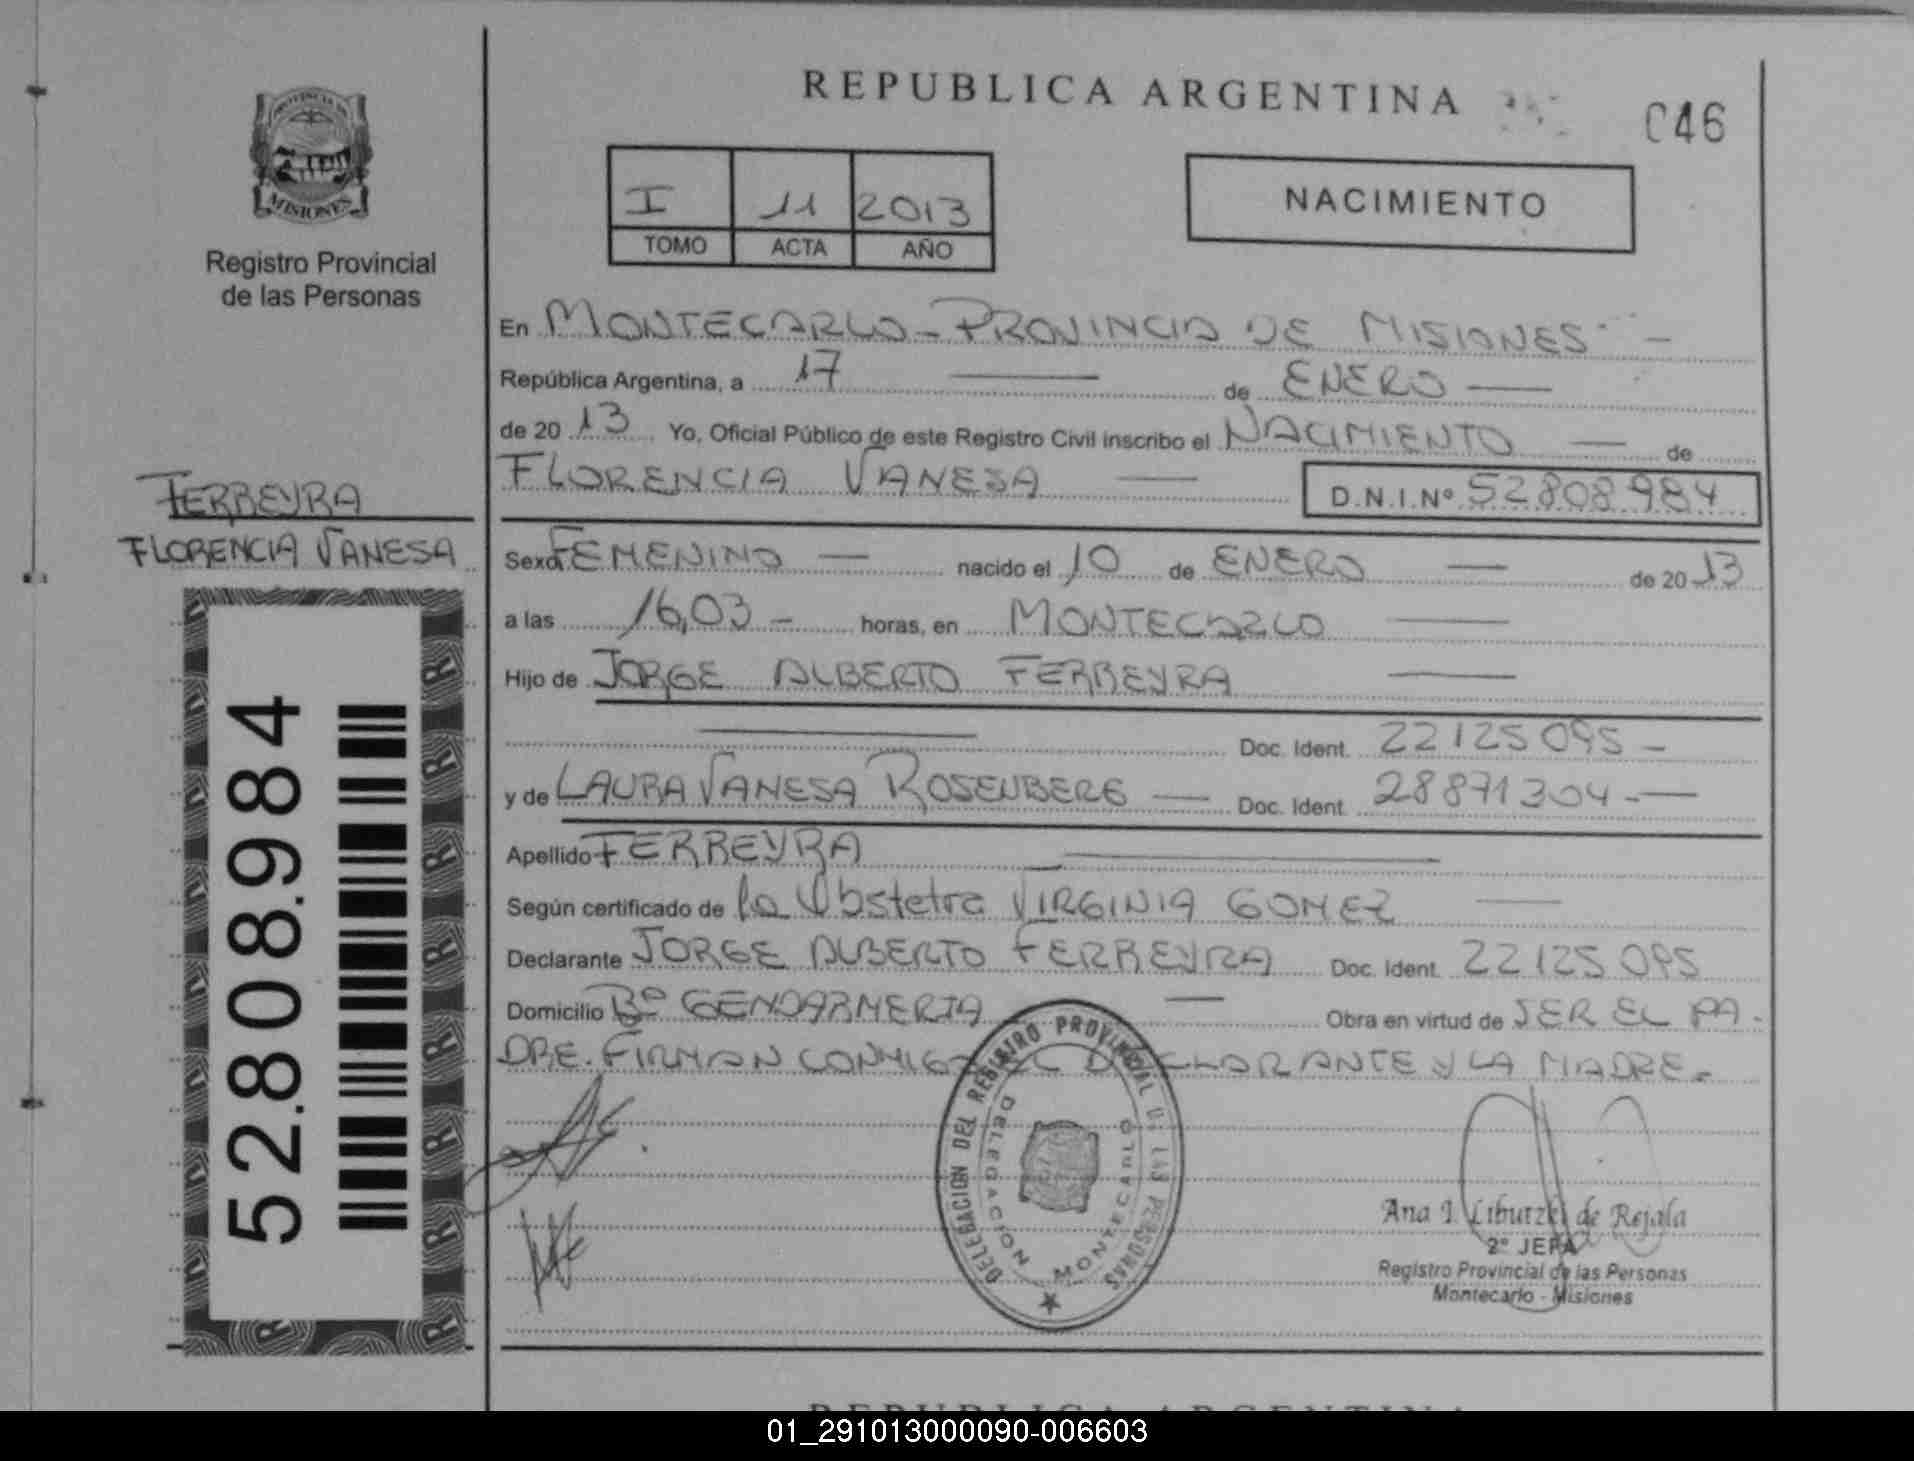 REPUBLICA ARGENTINA
046
PROVINCIA DE
MISIONES
Registro Provincial
de las Personas
I 11 2013
TOMO ACTA AÑO
NACIMIENTO
En MONTECARLO - PROVINCIA DE MISIONES -
República Argentina, a 17 de ENERO
de 20 13 Yo, Oficial Público de este Registro Civil inscribo el NACIMIENTO de
FLORENCIA VANESA D.N.I.Nº 52808984
FERREYRA
FLORENCIA VANESA
Sexo FEMENINO nacido el 10 de ENERO de 20 13
a las 16,03 - horas, en MONTECARLO
Hijo de JORGE ALBERTO FERREYRA
Doc. Ident. 22125095 -
y de LAURA VANESA ROSENBERG Doc. Ident. 28871304 -
Apellido FERREYRA
Según certificado de la Obstetra VIRGINIA GOMEZ
Declarante JORGE ALBERTO FERREYRA Doc. Ident. 22125095
Domicilio Bº GENDARMERIA Obra en virtud de SER EL PA-
DRE. FIRMAN CONMIGO EL DECLARANTE Y LA MADRE.
52.808.984
DELEGACION DEL REGISTRO PROVINCIAL DE LAS PERSONAS
DELEGACION MONTECARLO
Ana I. Liburzki de Rejala
2º JEFA
Registro Provincial de las Personas
Montecarlo - Misiones
REPUBLICA ARGENTINA
01_291013000090-006603